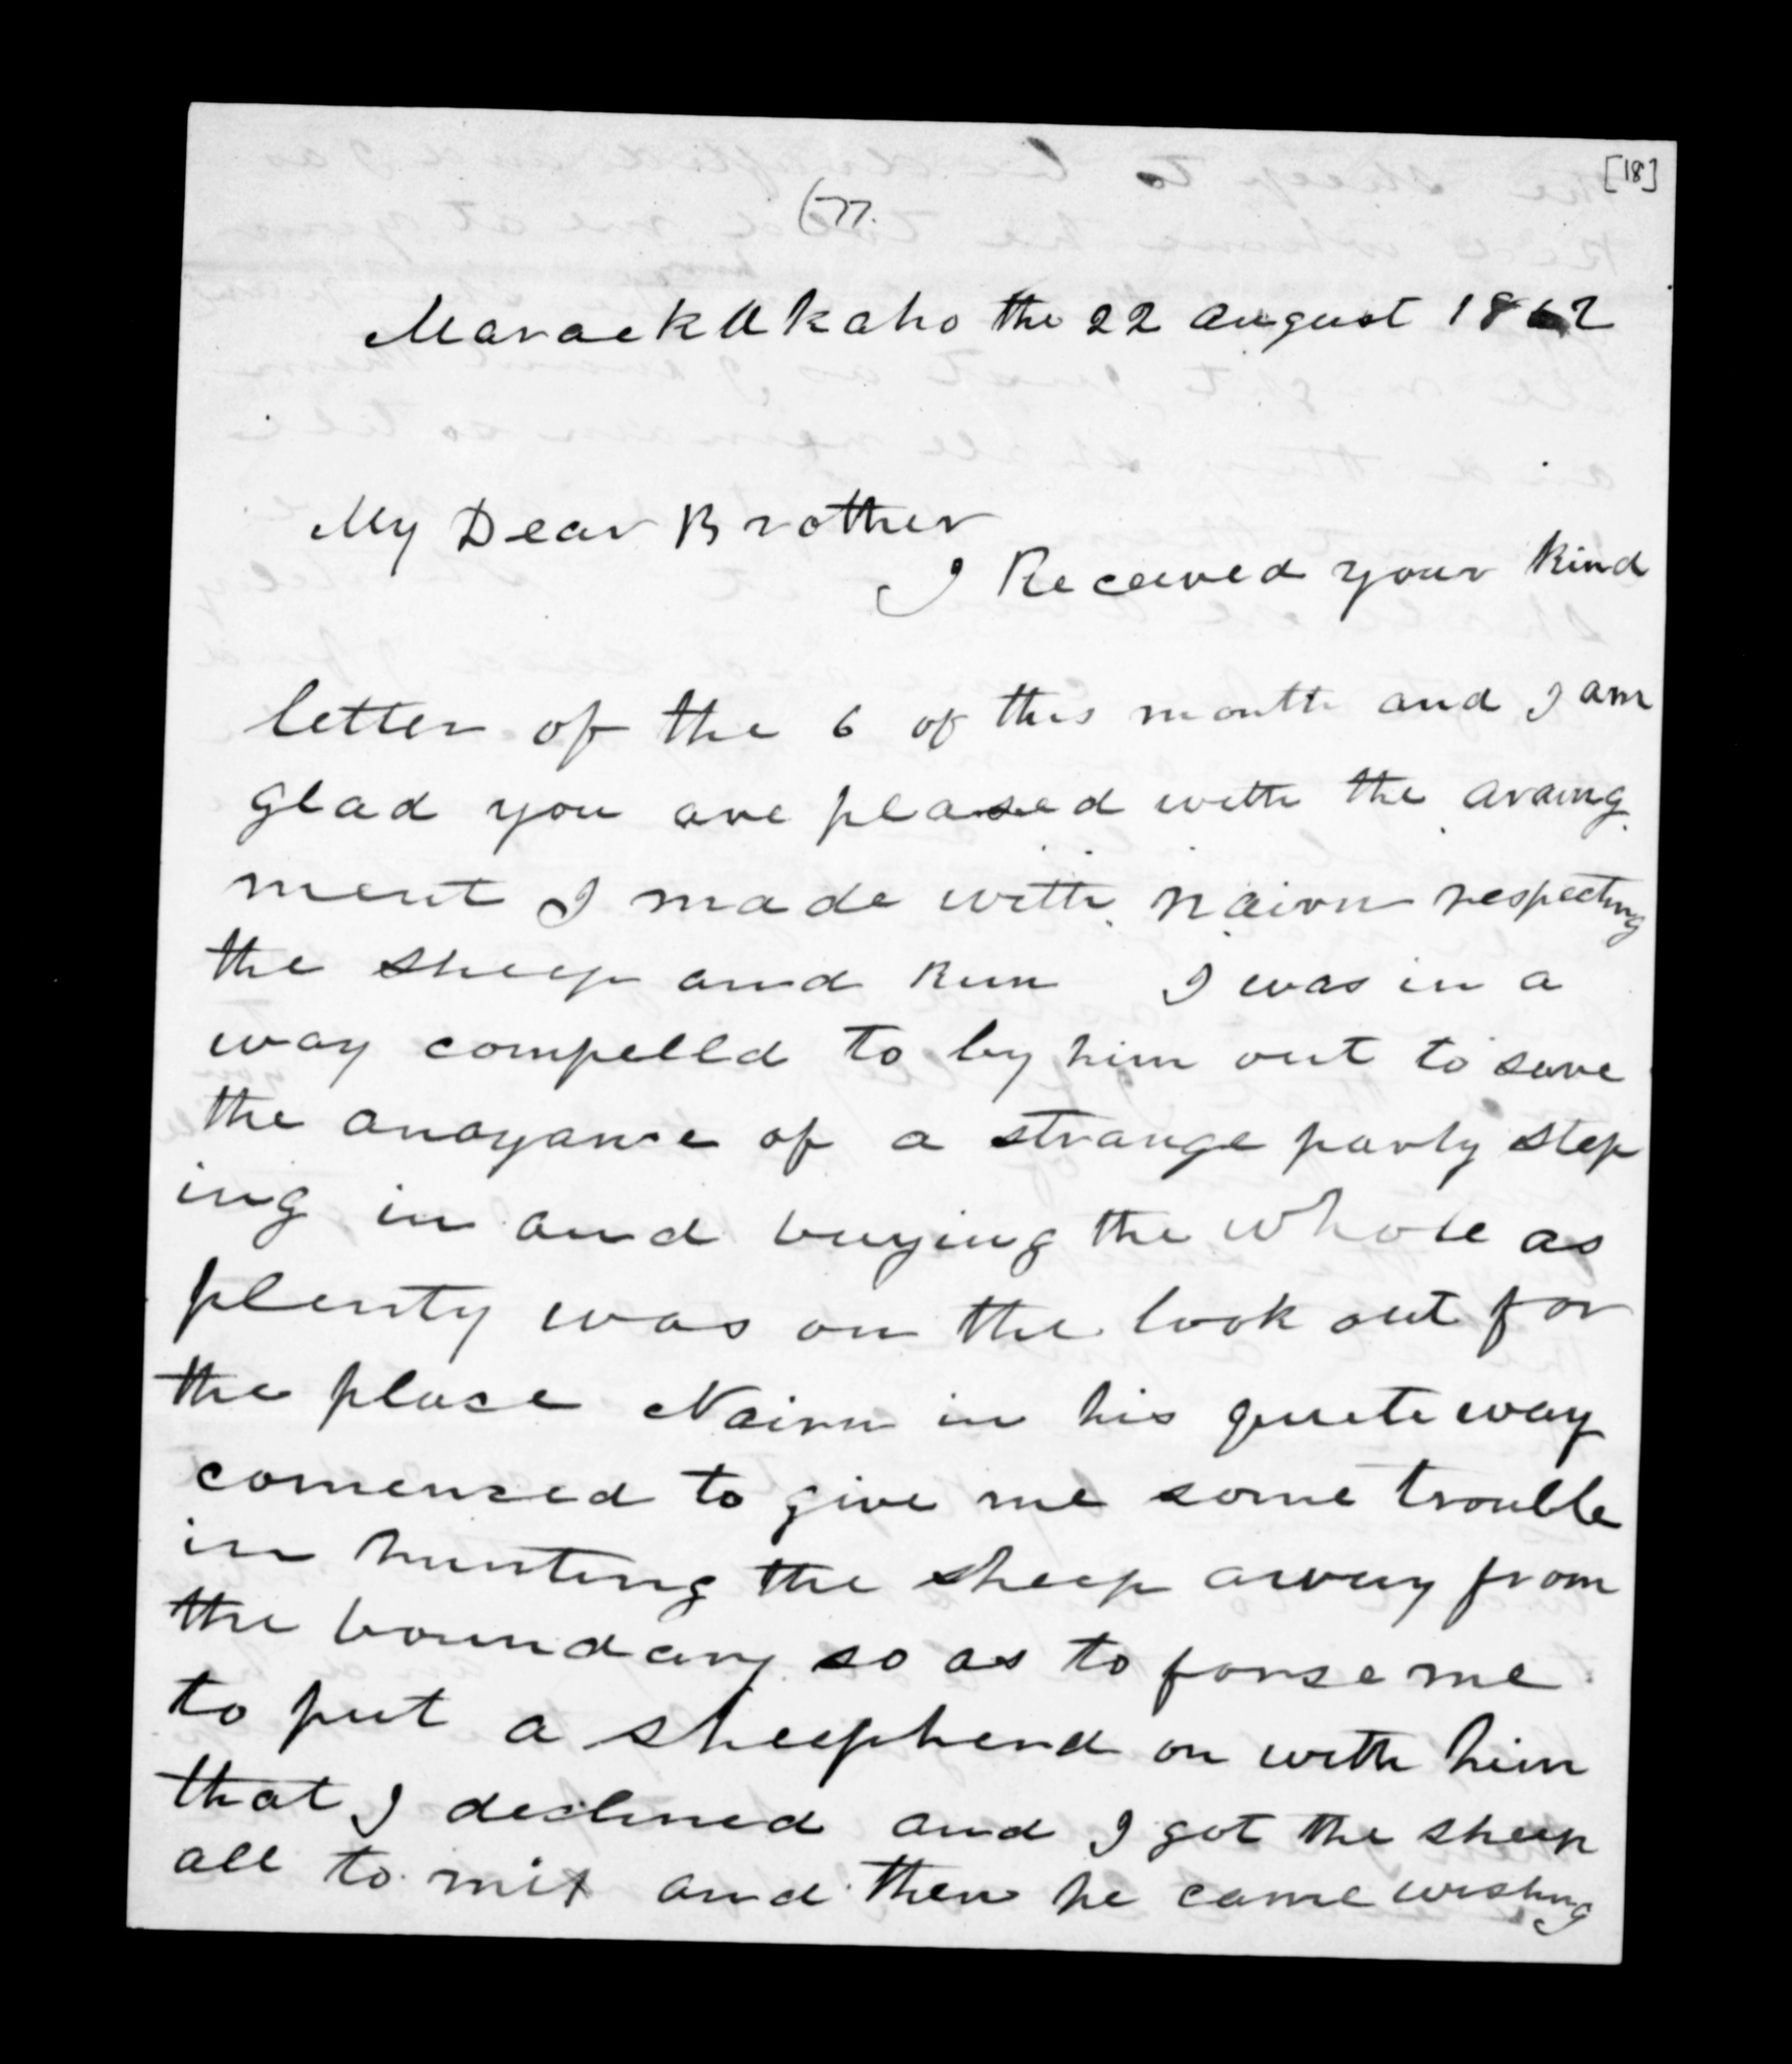 [18]
77.
MaraekAkaho the 22 august 1862
My Dear Brother
I Received your kind
letter of the 6 of this month and I am
glad you are pleased with the araing
ment I made with Nairn respecting
the sheep and Run I was in a
way compelld to by him out to save
the anoyance of a strange party step
ing in and buying the whole as
plenty was on the look out for
the place Nairn in his quite way
comenced to give me some trouble
in hunting the sheep away from
the boundary so as to forse me
to put a sheepherd on with him
that I declined and I got the sheep
all to mix and then he came wishing